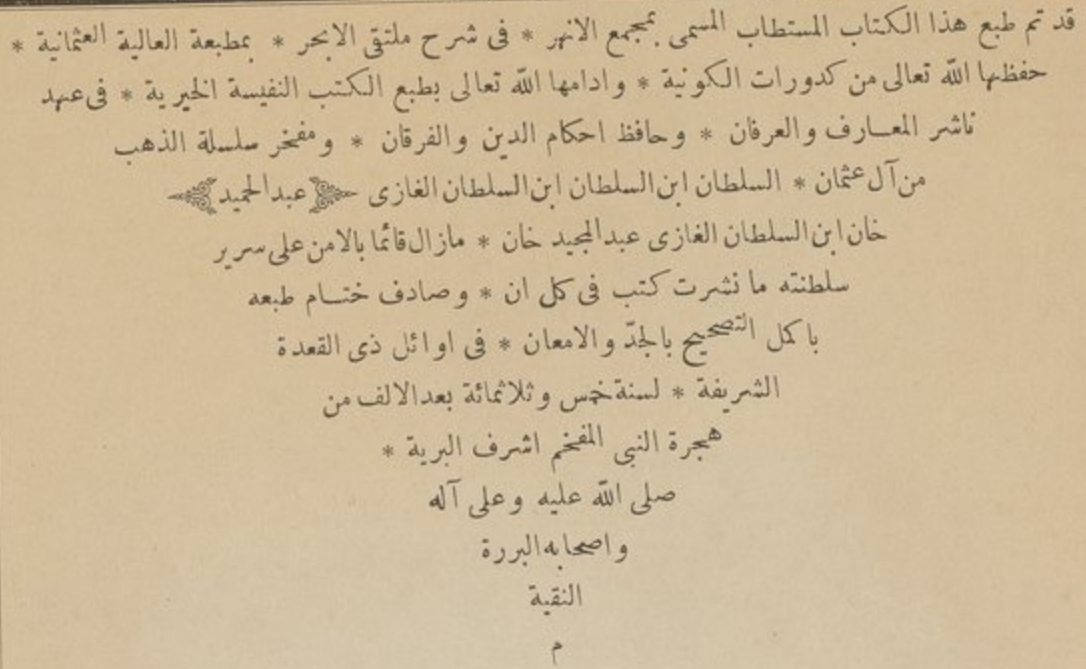 قد تم طبع هذا الكتاب المستطاب المسمى بمجمع الانهر * فى شرح ملتقى الابحر * بمطبعة العالية العثمانية *
حفظها الله تعالى من كدورات الكونية * وادامها الله تعالى بطبع الكتب النفيسة الخيرية * فى عهد
ناشر المعارف والعرفان * وحافظ احكام الدين والفرقان * ومفخر سلسلة الذهب
من آل عثمان * السلطان ابن السلطان ابن السلطان الغازى عبد الحميد
خان ابن السلطان الغازى عبد المجيد خان * مازال قائما بالامن على سرير
سلطنته ما نشرت كتب فى كل ان * وصادف ختام طبعه
باكمل التصحيح بالجدّ والامعان * فى اوائل ذى القعدة
الشريفة * لسنة خمس وثلاثمائة بعد الالف من
هجرة النبى المفخم اشرف البرية *
صلى الله عليه وعلى آله
واصحابه البررة
النقية
م